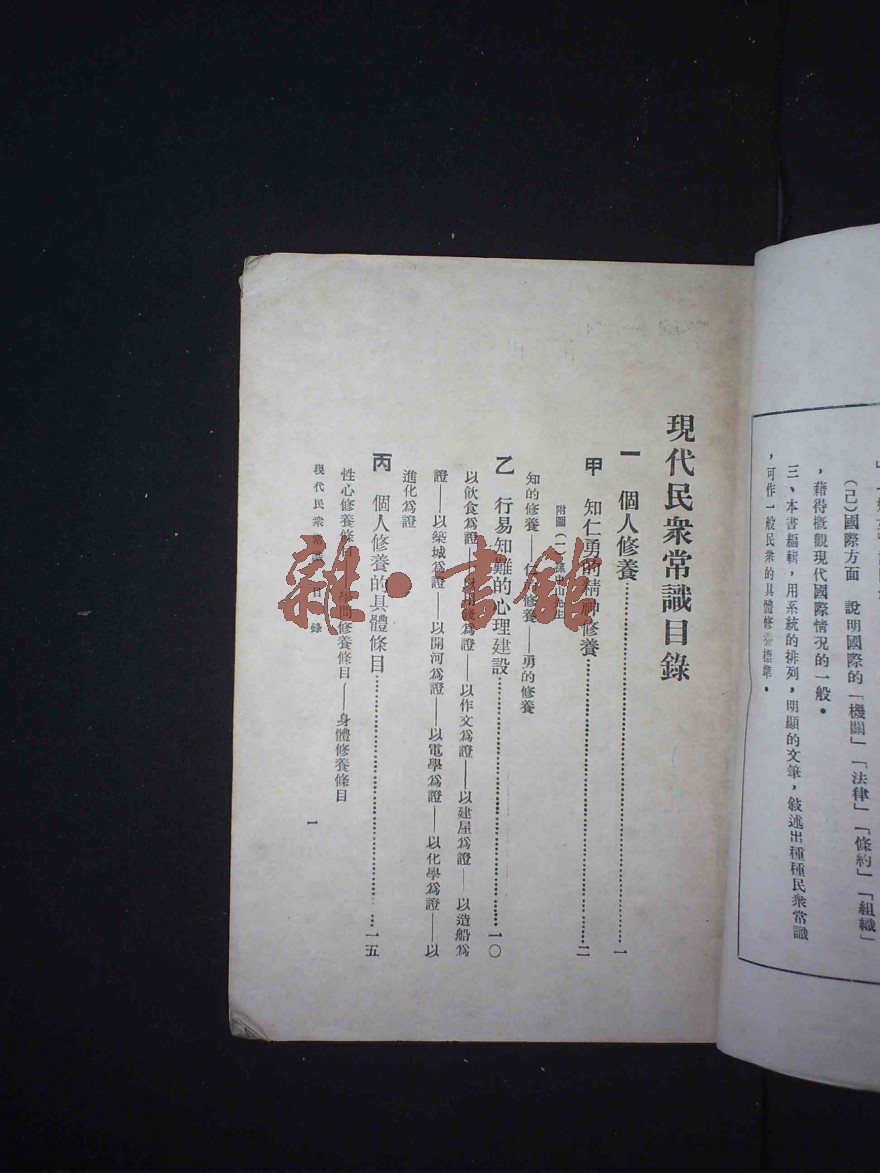 」
(己)國際方面 說明國際的「機關」「法律」「條約」「組織」
，藉待概觀現代國際情况的一般。
三、本書編輯，用系統的排列，明顯的文筆，敍述出種種民衆常識
，可作一般民衆的具體修養標準。
現代民衆常識目錄
一 個人修養……一
甲 知仁勇的精神修養……二
附圖(一)
知的修養——仁的修養——勇的修養
乙 行易知難的心理建設……一〇
以飲食爲證——以用錢爲證——以作文爲證——以建屋爲證——以造船爲
證——以築城爲證——以開河爲證——以電學爲證——以化學爲證——以
進化爲證
丙 個人修養的具體條目……一五
性心修養條目——學問修養條目——身體修養條目
現代民衆常識 目錄
一
雜·書館